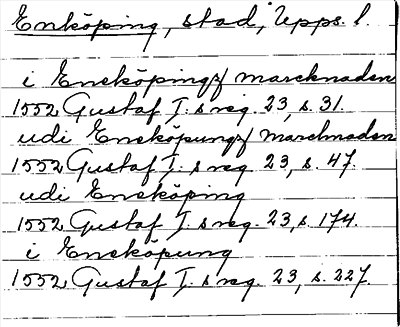 Enköping, stad, Upps. l.
i Eneköpingz marcknaden
1552 Gustaf I.s reg. 23, s. 31.
udi Eneköpungz marchnaden
1552 Gustaf I.s reg. 23, s. 47.
udi Eneköping
1552 Gustaf I.s reg. 23, s. 174.
i Eneköpung
1552 Gustaf I.s reg. 23, s. 227.